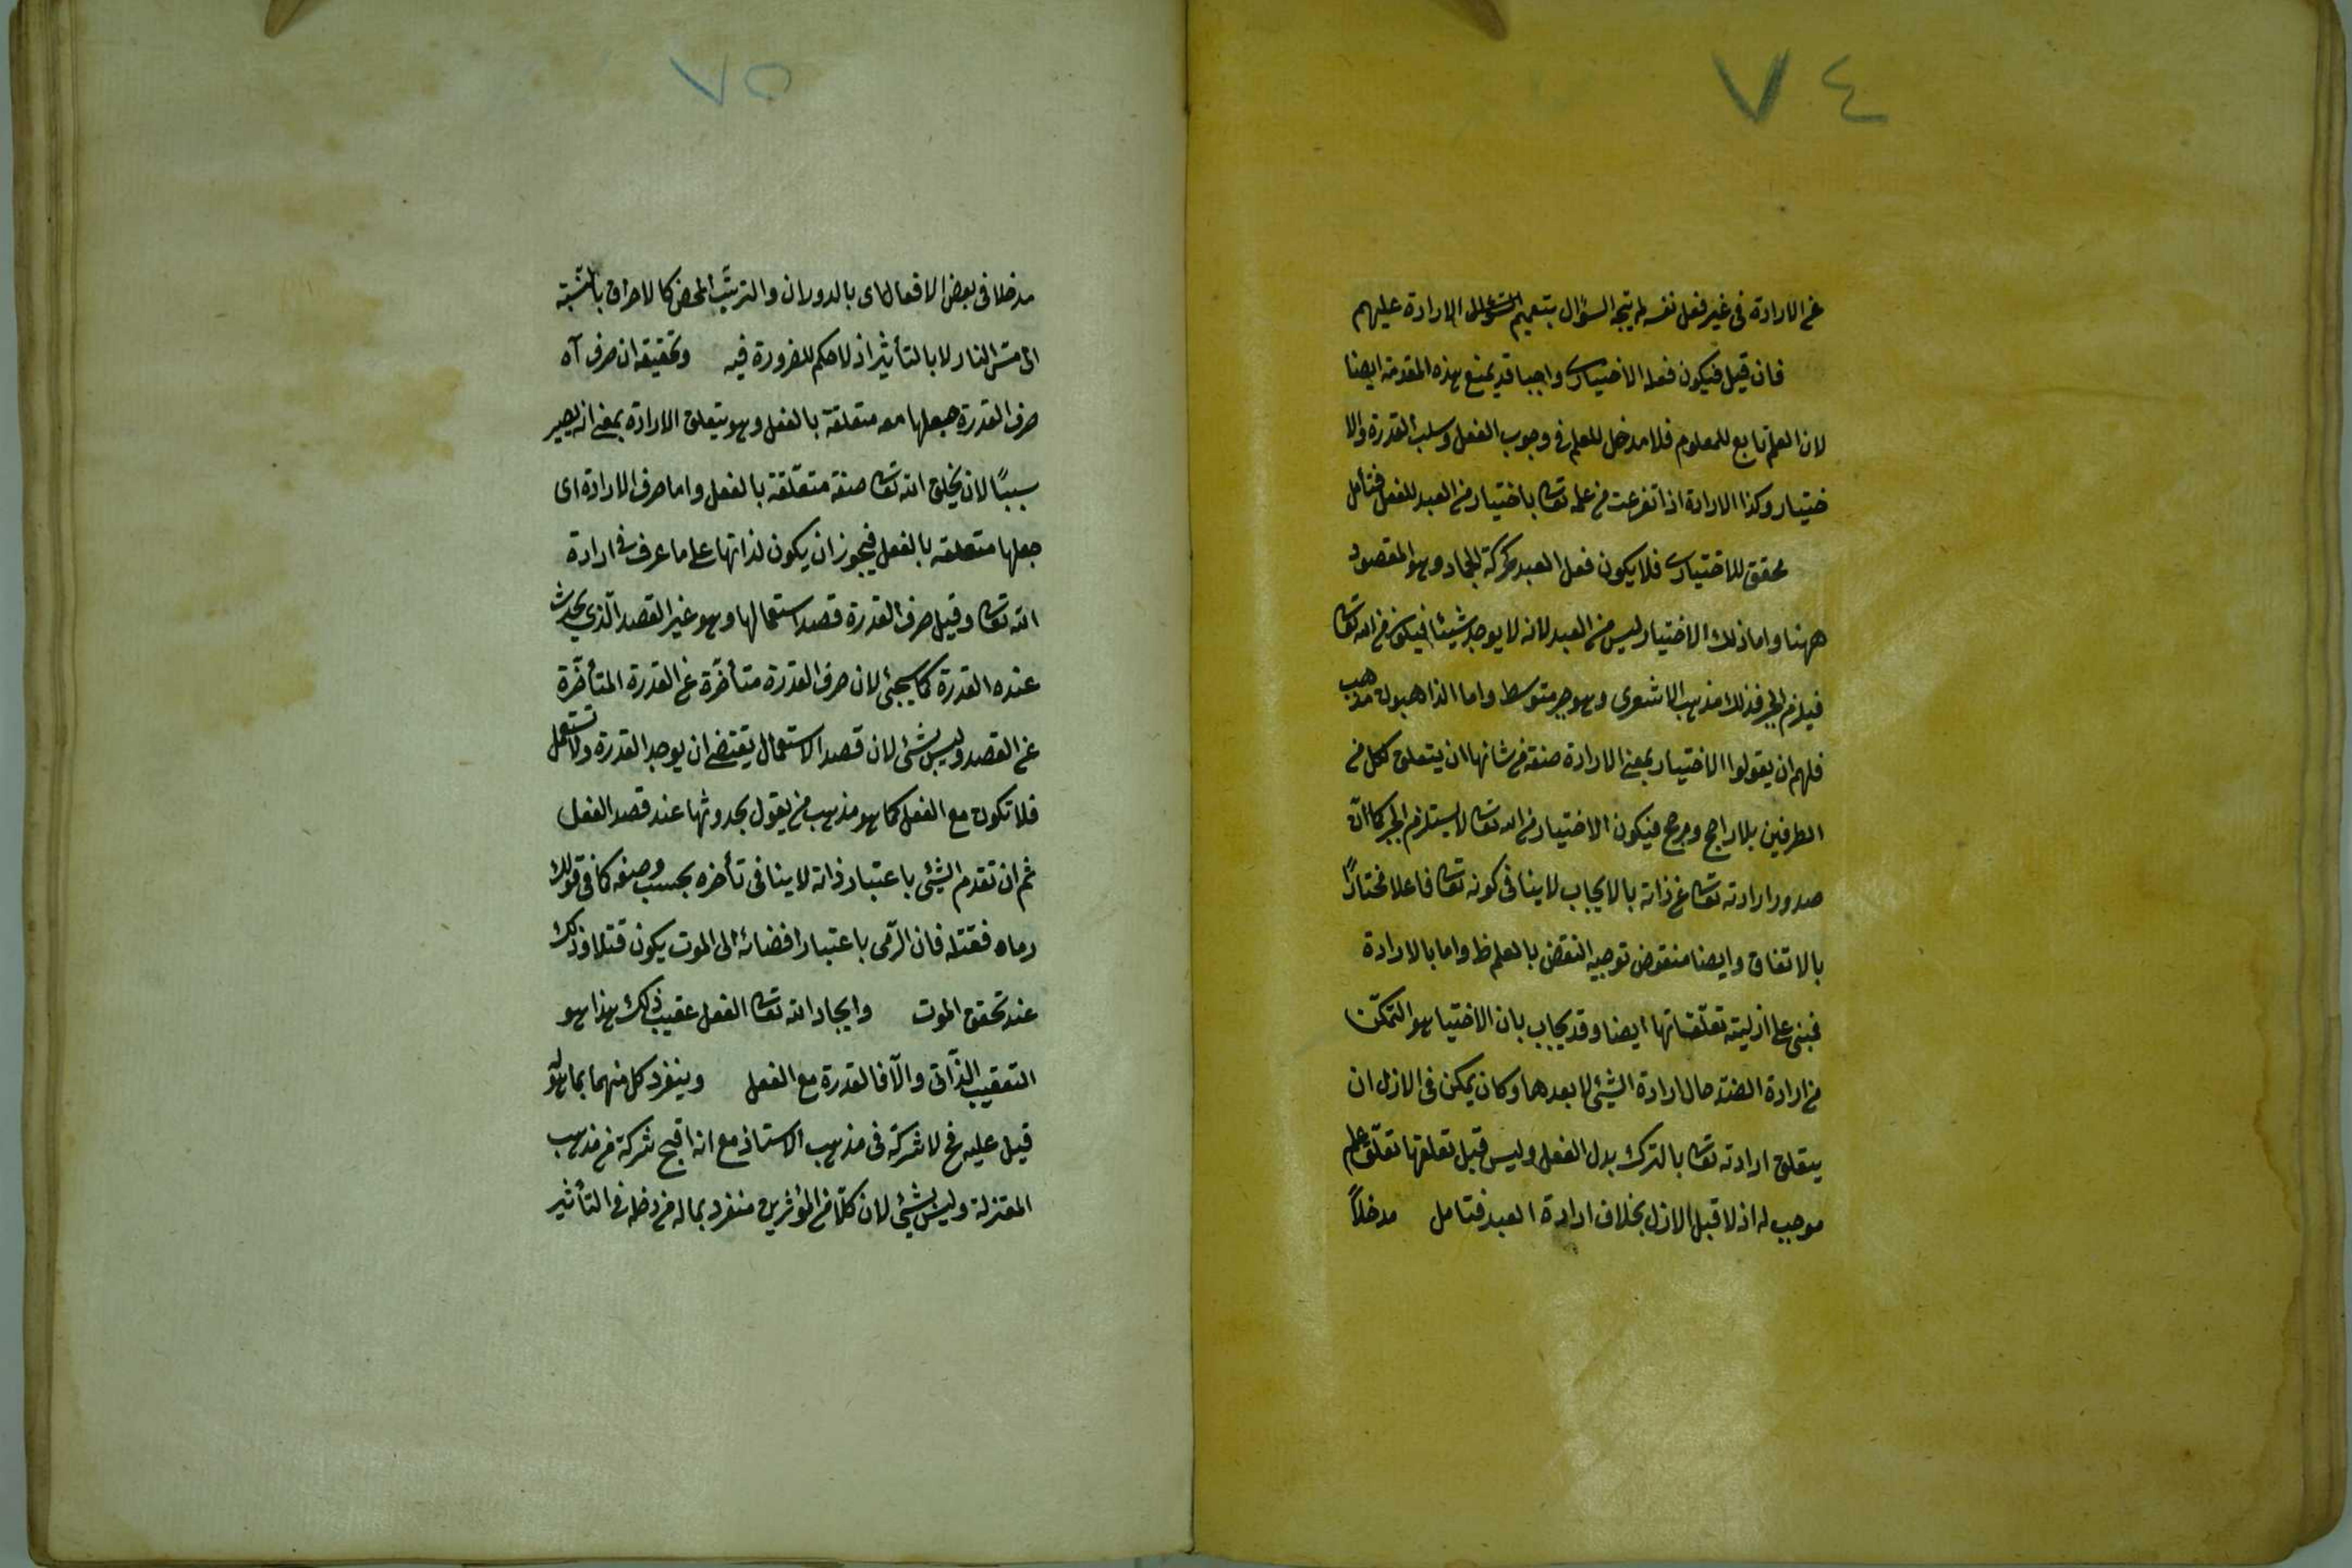 ٧٤
عن الارادة فى غير فعل نفسه لم يتجه السؤال بتعميم الارادة عليهم
فان قيل فيكون فعله الاختيارى واجبا قد يمنع بهذه المقدمة ايضا
لان العلم تابع للمعلوم فلا مدخل للعلم فى وجوب الفعل وسلب القدرة والا
ختيار وكذا الارادة اذا تفرعت من علمه تعالى باختيار من العبد للفعل فتأمل
محقق للاختيارى فلا يكون فعل العبد كحركة الجماد وهو المقصود
ههنا واما ذلك الاختيار ليس من العبد لانه لا يوجد شيئا فيكون من الله تعالى
فيلزم الجبر فذلك مذهب الاشعرى وهو جبر متوسط واما الذاهبون مذهب
فلهم ان يقولوا الاختيار بمعنى الارادة صفة من شانها ان يتعلق لكل من
الطرفين بلا راجح ومرجح فيكون الاختيار من الله تعالى لا يستلزم الجبر كما ان
صدور ارادته تعالى عن ذاته بالايجاب لا ينافى كونه تعالى فاعلا مختارًا
بالاتفاق وايضا منقوض توجيه النقض بالعلم ظ واما بالارادة
فبنى على ازلية تعلقاتها ايضا وقد يجاب بان الاختيا هو التمكن
من ارادة الضد حال ارادة الشئ لا بعدها وكان يمكن فى الازل ان
يتعلق ارادته تعالى بالترك بدل الفعل وليس قبل تعلقها تعلق علم
موجب له اذ لا قبل الازل بخلاف ارادة العبد فتامل مدخلاً
٧٥
مدخلا فى بعض الافعال اى بالدوران والترتّب المحض كالاحراق بالنسبة
الى مسّ النار لا بالتأثير اذ لا حكم للضرورة فيه وتحقيقه ان صرف آه
صرف القدرة جعلها معه متعلقة بالفعل وهو بتعلق الارادة بمعنى انه يصير
سببًا لان يخلق الله تعالى صفة متعلّقة بالفعل واما صرف الارادة اى
جعلها متعلقة بالفعل فيجوز ان يكون لذاتها على ما عرف فى ارادة
الله تعالى وقيل صرف القدرة قصد استعمالها وهو غير القصد الّذى يحدث
عنده القدرة كما سيجئ لان صرف القدرة متأخّرة عن القدرة المتأخّرة
عن القصد وليس بشئ لان قصد الاستعمال يقتضى ان يوجد القدرة ولا تستعمل
فلا تكون مع الفعل كما هو مذهب من يقول بحدوثها عند قصد الفعل
ثم ان تقدم الشئ باعتبار ذاته لا ينافى تأخره بحسب وصفه كما فى قولك
رماه فقتله فان الرّمى باعتبار افضائه الى الموت يكون قتلا وذلك
عند تحقق الموت وايجاد الله تعالى الفعل عقيب ذلك هذا هو
التعقيب الذّاتى والّا فالقدرة مع الفعل وينفرد كل منهما بما هو له
قيل عليه فح لا شركة فى مذهب الاستاذ مع انه اقبح شركة من مذهب
المعتزلة وليس بشئ لان كلّا من المؤثرين منفرد بماله من دخله فى التأثير